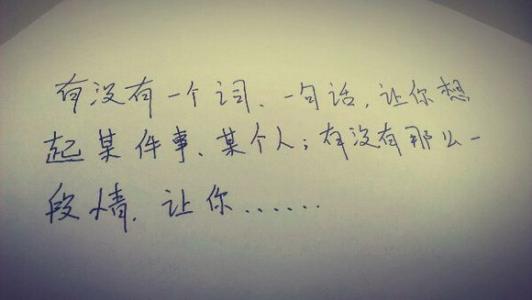 有没有一个词、一句话,让你想
起某件事、某个人;有没有那么一
段情,让你......